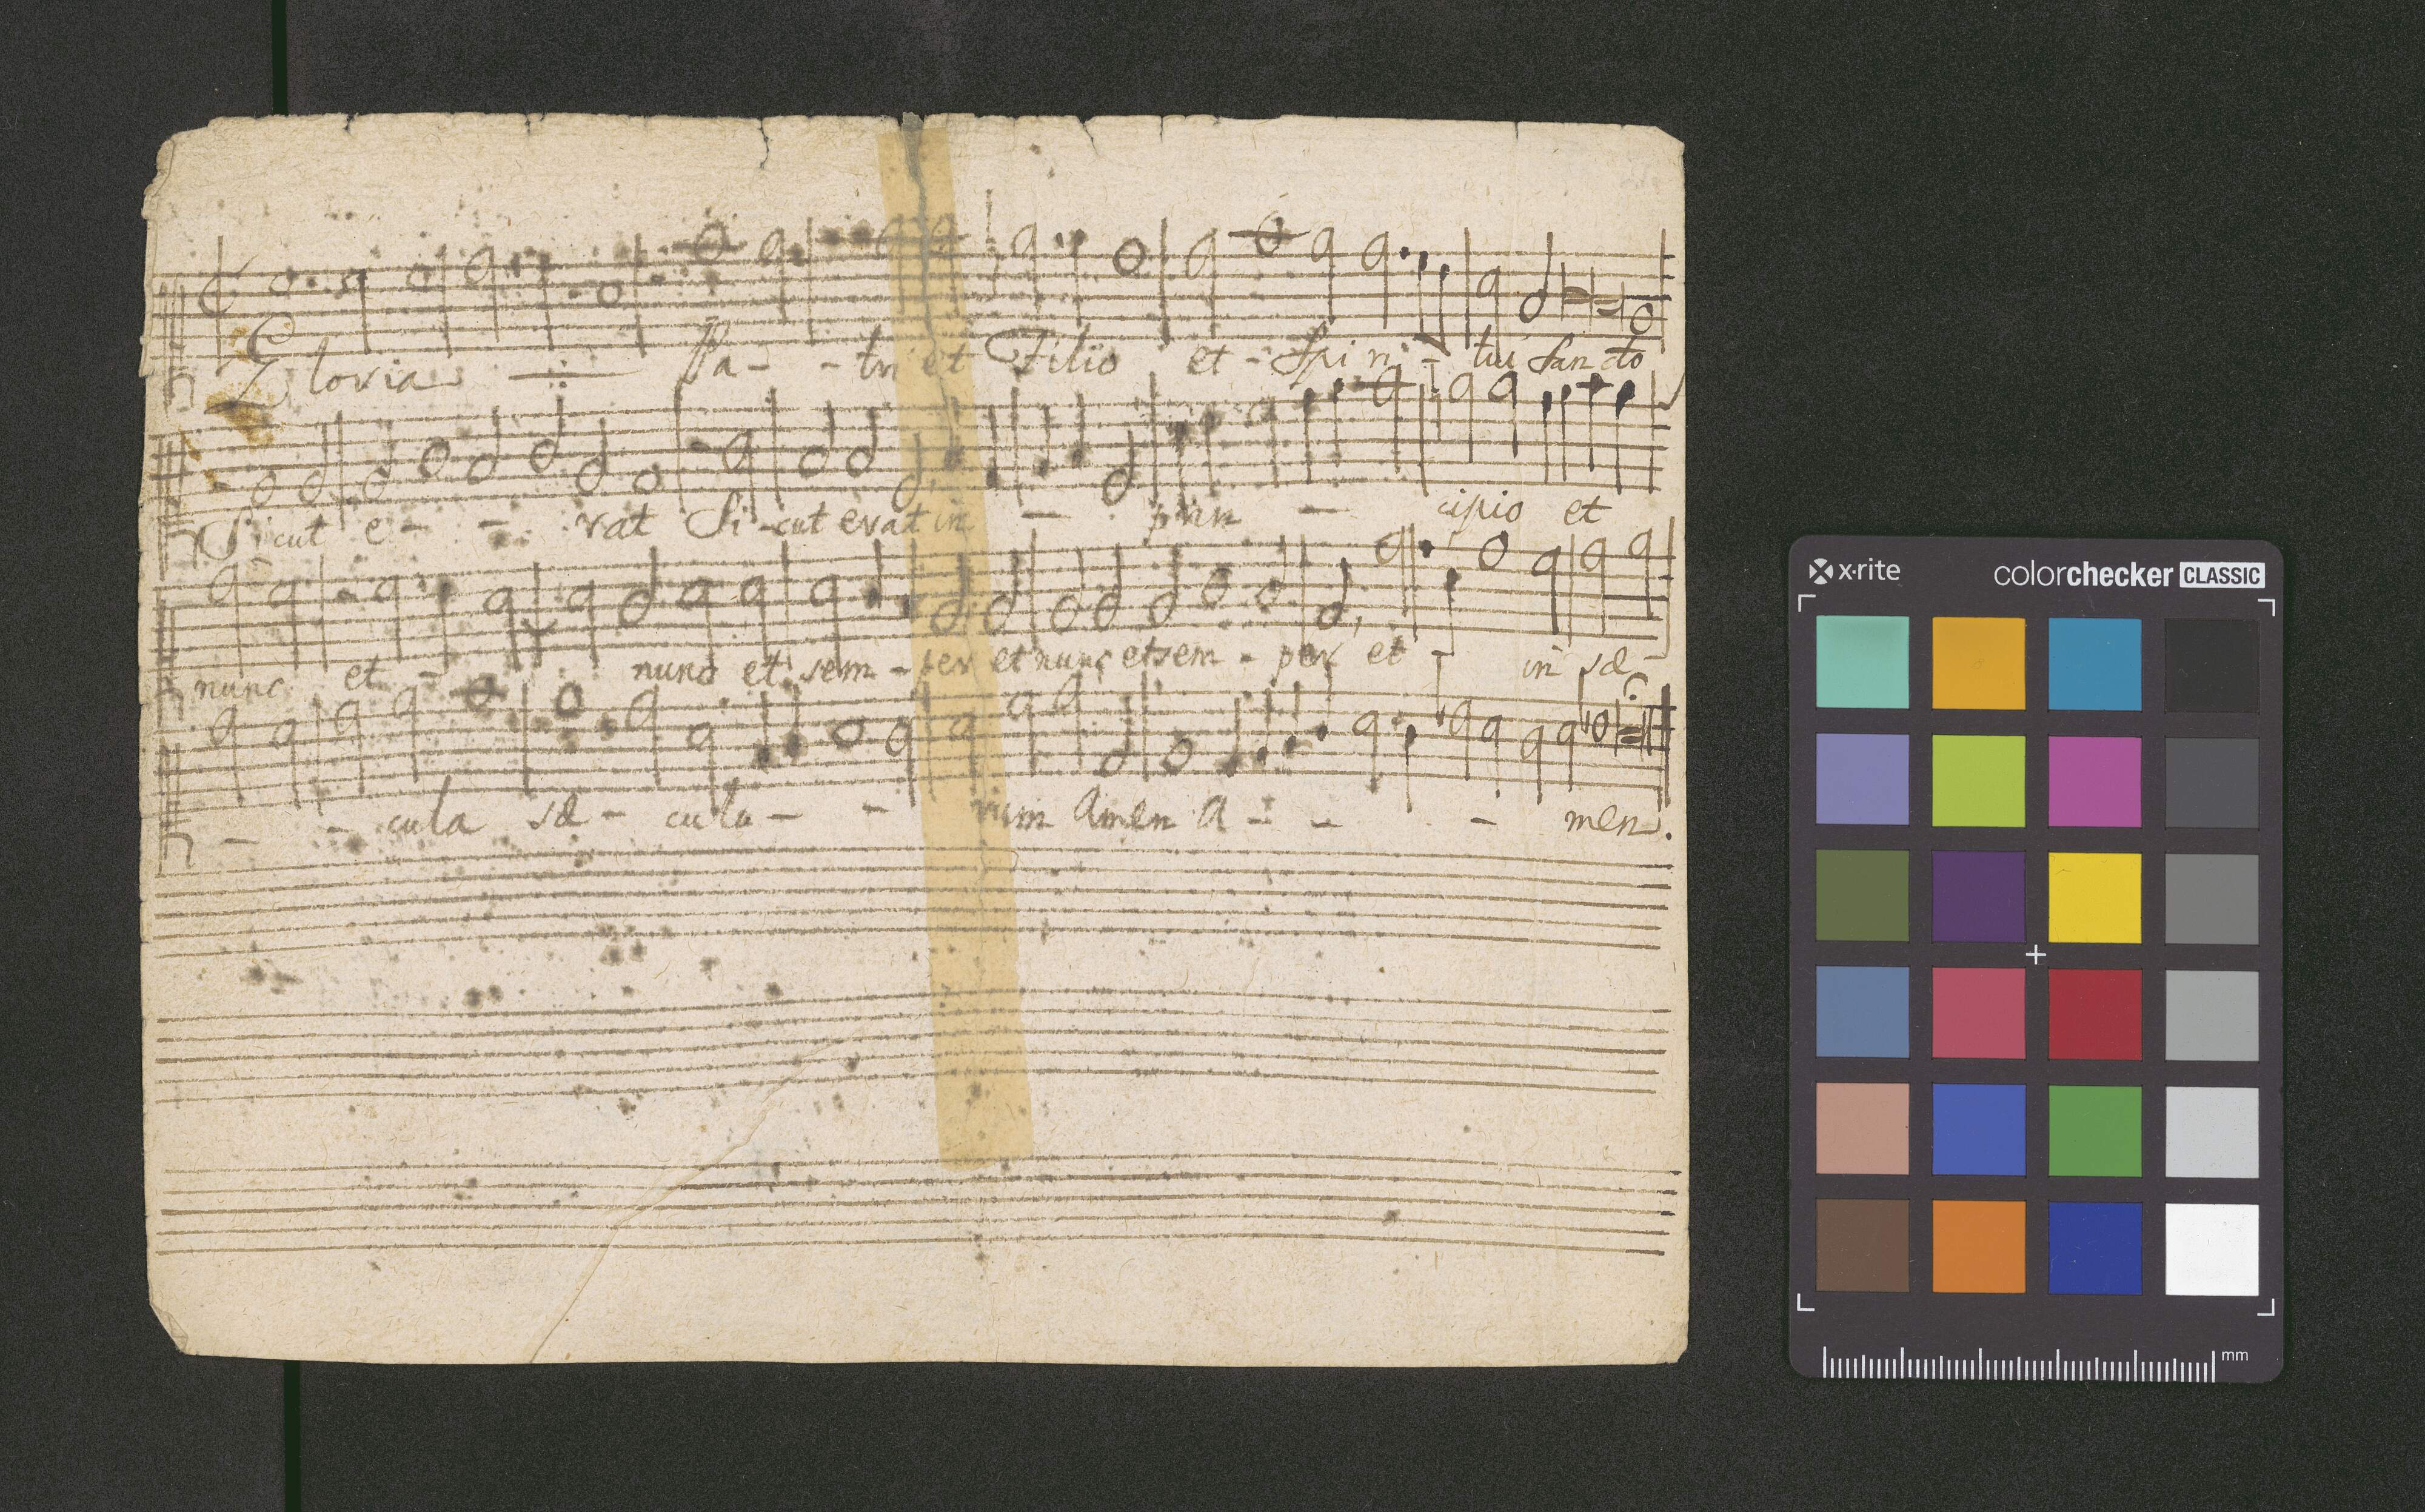 Gloria Pa - - tri et Filio et - Spi ri - tui San cto
Si cut e - - rat Si - cut erat in - prin - cipio et
nunc et - nunc et sem - per et nunc et sem - per et - in sæ -
- - cula sæ - cula - - rum Amen A - - - men.
x·rite colorchecker CLASSIC
mm